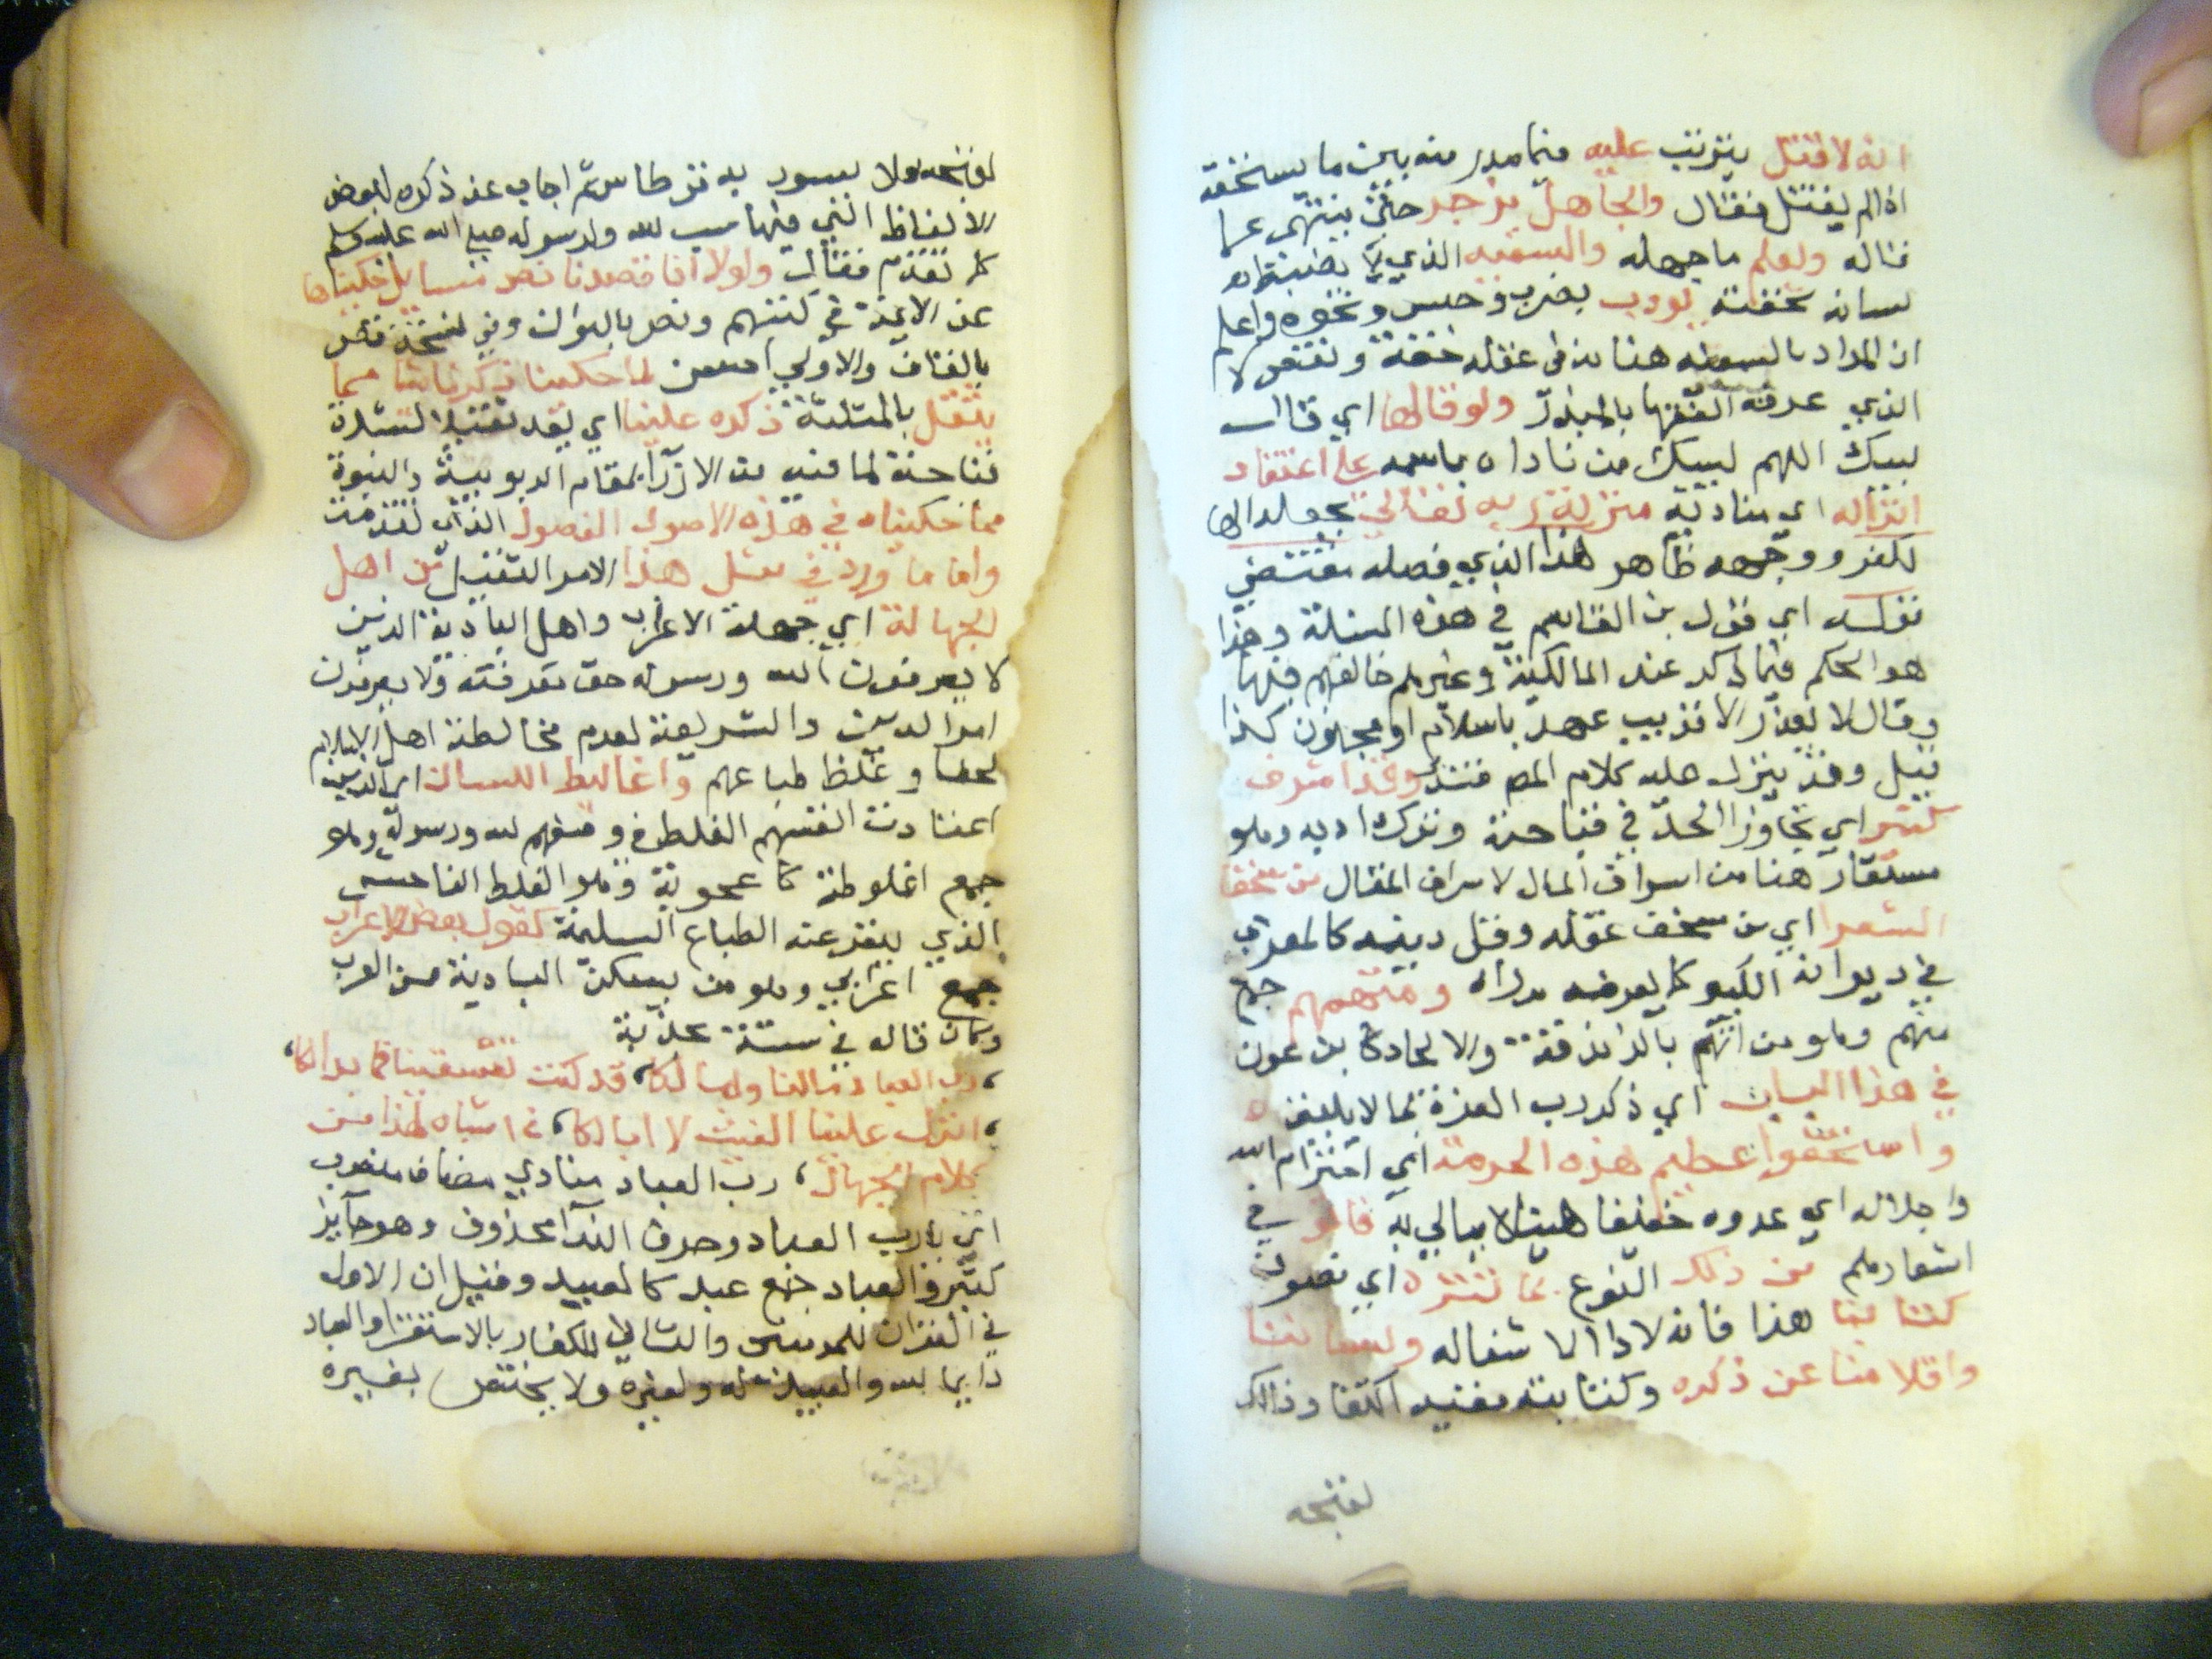 انه لا قتل يترتب عليه فيما صدر منه بين ما يستحقه
اذا لم يقتل فقال والجاهل يزجر حتى ينتهي عما
قاله ويعلم ما جهله والسفيه الذي لا يضبط
لسانه لخفته يودب بضرب وحبس ونحوه واعلم
ان المراد بالسفيه هنا من في عقله خفة ونقص لا
الذي عرفه الفقها بالمبذر ولو قالها اي قال
لبيك اللهم لبيك من ناداه باسمه على اعتقاد
انزاله اي مناديه منزلة ربه تعالى بجعله الها
لكفر ووجهه ظاهر هذا الذي فصله مقتضى
قوله اي قول بن القاسم في هذه المسئلة وهذا
هو الحكم فيما ذكر عند المالكية وغيرهم خالفهم فيها
وقال لا يعذر الا قريب عهد باسلام او مجنون كذا
قيل وقد ينزل عليه كلام المص فتدبر وقد اسرف
كثير اي تجاوز الحد في قباحة وترك ادبه وهو
مستعار هنا من اسراف المال لاسراف المقال من سخفا
الشعرا اي من سخف عقله وقل دينه كالمعري
في ديوانه الكبير كما يعرفه من راه ومتهميهم جمع
متهم وهو من اتهم بالزندقة والالحاد
في هذا الباب اي ذكر رب العزة بما لا يليق به
واستخفوا عظيم هذه الحرمة اي احترام الله
واجلاله اي عدوه خفيفا هينا لا يبالي به فاتوا في
اشعارهم من ذلك النوع بما ننزه اي نصون
كتابنا هذا فانه لا داعي لاشغاله ولساننا
واقلامنا عن ذكره وكتابته تفيد اكتفا وذلك
لقبحه
لقبحه ولا يسود به قرطاس ثم اجاب عن ذكره لبعض
الالفاظ التي فيها سب لله ولرسوله صلى الله عليه وسلم
كما تقدم فقال ولولا انا قصدنا نص مسايل حكيناها
عن الايمة في كتبهم ونص بالنون وفي نسخة قص
بالقاف والاولى احسن لما حكينا ذكرنا شيا مما
يثقل بالمثلثة ذكره علينا اي يعد ثقيلا لشدة
قباحة لما فيه من الازرا بمقام الربوبية والنبوة
مما حكيناه في هذه الاصول الفصول التي تقدمت
واما ما ورد في مثل هذا الامر الثقيل من اهل
الجهالة اي جهلة الاعراب واهل البادية الذين
لا يعرفون الله ورسوله حق معرفته ولا يعرفون
امر الدين والشريعة لعدم مخالطة اهل الاسلام
لجفا وغلظ طباعهم واغاليط اللسان اي الذين
اعتادت السنتهم الغلط في وصفهم لله ورسوله وهو
جمع اغلوطة كاعجوبة وهو الغلط الفاحش
الذي ينفر عنه الطباع السليمة كقول بعض الاعراب
جمع اعرابي وهو من يسكن البادية من العرب
وكان قاله في سنة جدبة
، رب العباد مالنا وما لكا، قد كنت تسقينا فما بدا لكا،
، انزل علينا الغيث لا ابا لكا، في اشباه لهذا من
كلام الجهال، رب العباد منادي مضاف منصوب
اي يا رب العباد وحرف الندا محذوف وهو جايز
كثير والعباد جمع عبد كالعبيد وقيل ان الاول
في القران للمومنين والثاني للكفار بالاستقرا والعباد
دايما لله والعبيد له ولغيره ولا يختص بغيره